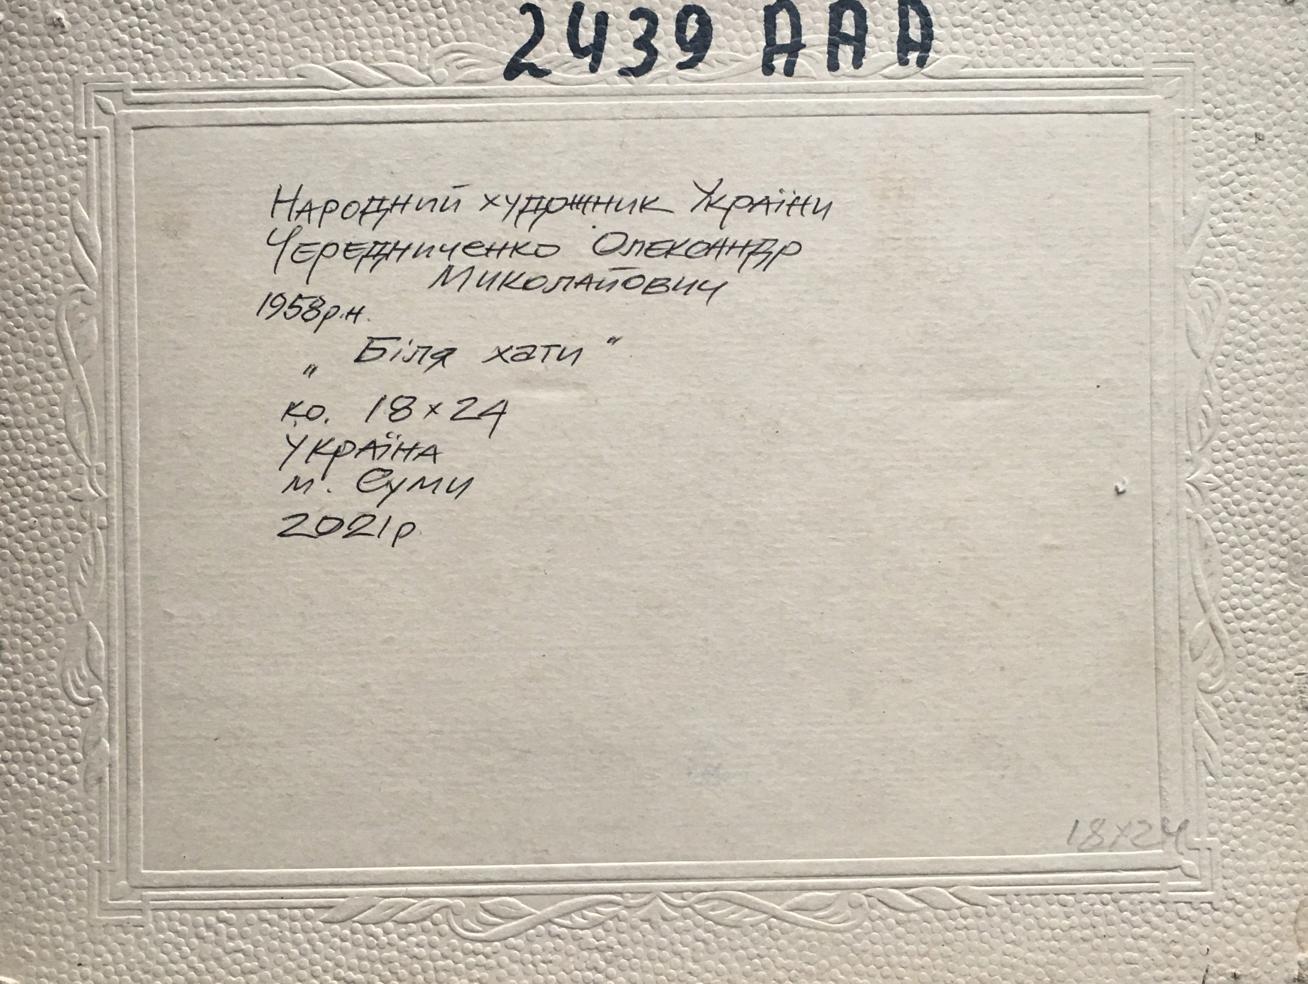 2439 ААА
Народний художник України
Чередниченко Олександр
Миколайович
1958р.н.
„ Біля хати "
ко. 18×24
Україна
м. Суми
2021р.
18×24